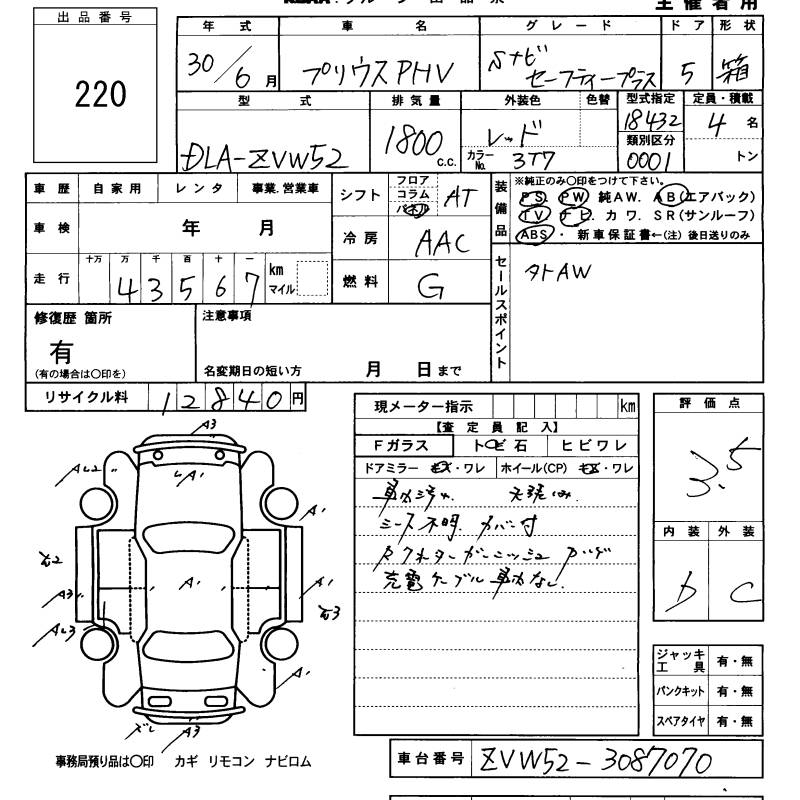 出品番号
220
年 式 車 名 グ レ ー ド ドア 形状
30/6月 プリウスPHV Sナビ セーフティープラス 5 箱
型 式 排気量 外装色 色替 型式指定 定員・積載
DLA-ZVW52 1800c.c. レッド 18432 4名
カラーNo. 3T7 類別区分 0001 トン
車歴 自家用 レンタ 事業.営業車
車検 年 月
走行 十万 万 千 百 十 一
43567 km マイル
シフト フロア コラム パネル AT
冷房 AAC
燃料 G
装備品
※純正のみ〇印をつけて下さい。
PS. PW. 純AW. AB(エアバック)
TV ナビ. カワ. SR(サンルーフ)
ABS・ 新車保証書←(注) 後日送りのみ
セールスポイント
タトAW
修復歴 箇所
有
(有の場合は〇印を)
注意事項
名変期日の短い方 月 日まで
リサイクル料 12840円
現メーター指示 km
【査 定 員 記 入】
Fガラス トビ石 ヒビワレ
ドアミラー キズ・ワレ ホイール(CP) キズ・ワレ
車内汚れ
シート不明. カバー付
充電ケーブル車内なし.
評価点
3.5
内装 外装
D C
ジャッキ工具 有・無
パンクキット 有・無
スペアタイヤ 有・無
A3
AL2
A'
A'
A'
A'
A3
AL3
A'
A3
事務局預り品は〇印 カギ リモコン ナビロム
車台番号 ZVW52-3087070